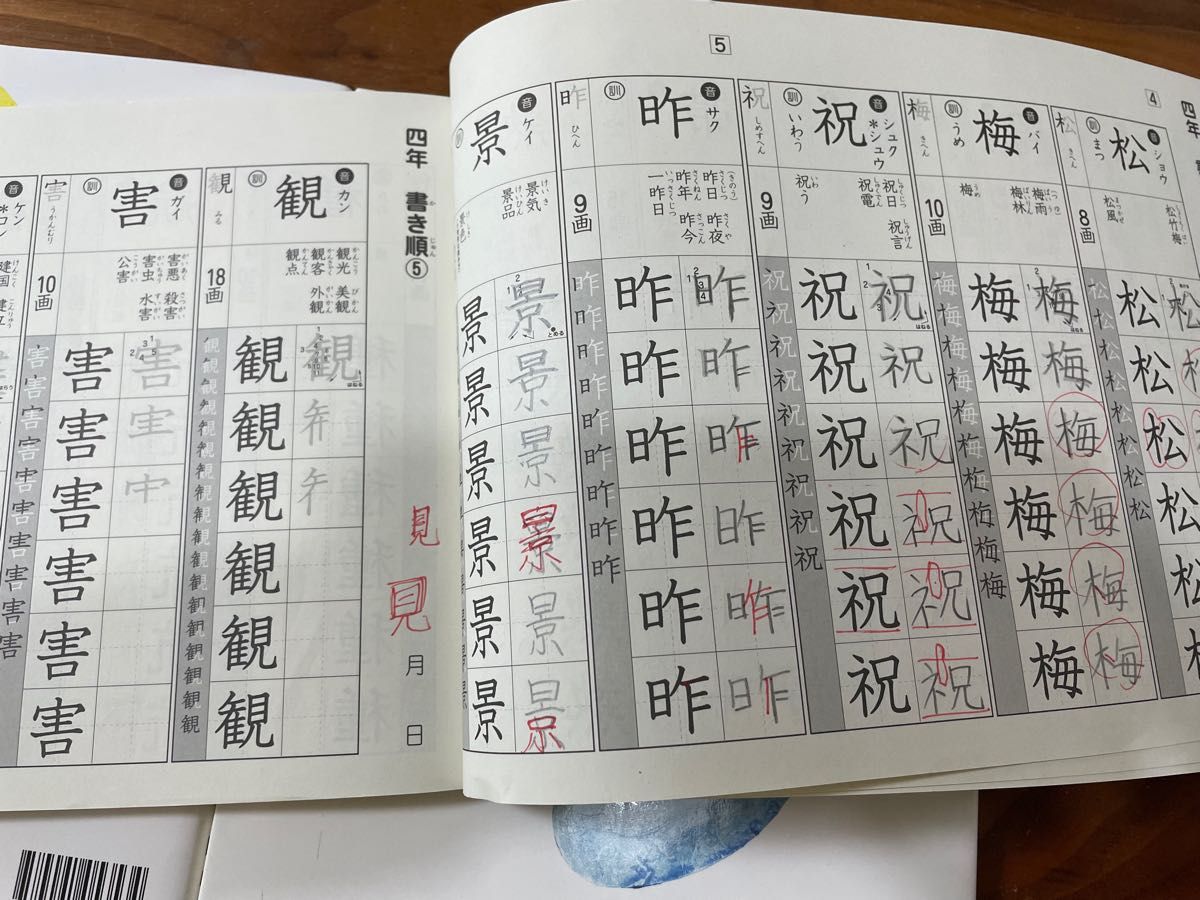 四年
4
松
音 ショウ
訓 まつ
きへん
松竹梅
松風
8画
松 松 松 松 松 松
梅
音 バイ
訓 うめ
きへん
梅雨
梅林
梅
10画
はねる
梅 梅 梅 梅 梅 梅
5
祝
音 シュク
*シュウ
訓 いわう
しめすへん
祝日 祝言
祝電
祝う
9画
はねる
祝 祝 祝 祝 祝 祝
昨
音 サク
訓
ひへん
(きのう)
昨日 昨夜
昨年 昨今
一昨日
9画
昨 昨 昨 昨 昨 昨
景
音 ケイ
景気
景品
景色
とめる
景 景 景 景 景 景
四年 書き順⑤
見
見
月 日
観
音 カン
訓
みる
観光 美観
観客 外観
観点
18画
はねる
観 観 観 観 観 観
害
音 ガイ
訓
うかんむり
害悪 殺害
害虫 水害
公害
10画
害 害 害 害 害 害
音 ケン
*コン
建国 建立